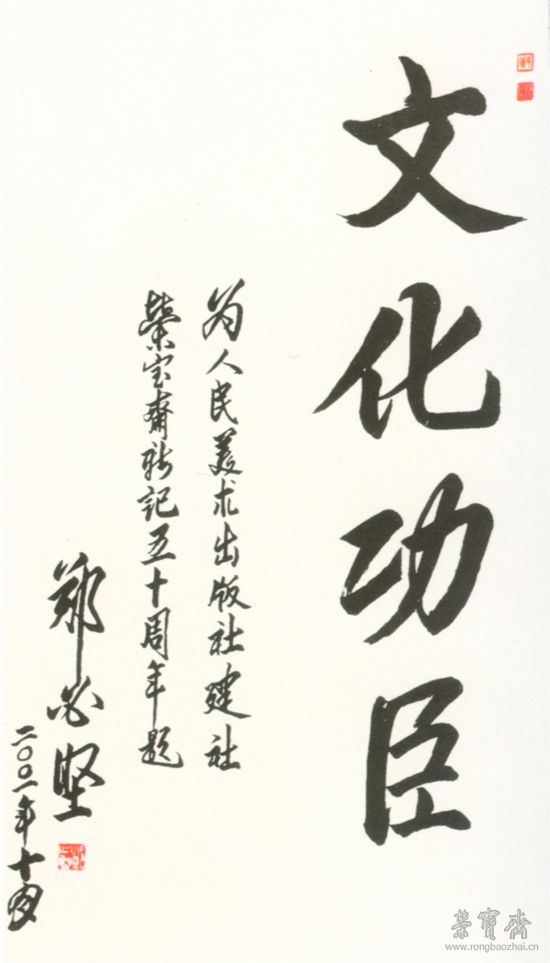 文化功臣
为人民美术出版社建社
荣宝斋新记五十周年题
郑必坚
二〇〇一年十月
榮寶齋
www.rongbaozhai.cn